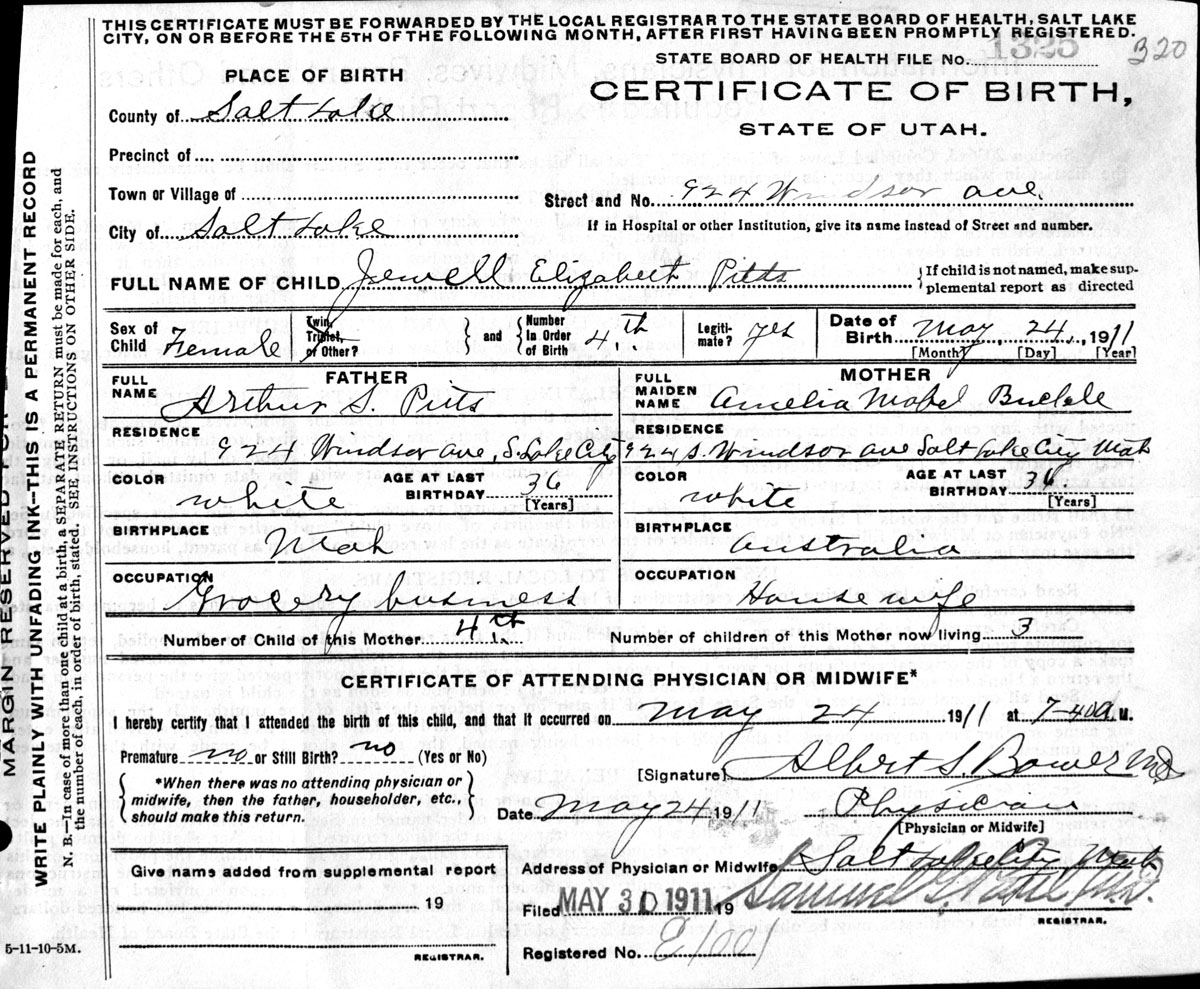 THIS CERTIFICATE MUST BE FORWARDED BY THE LOCAL REGISTRAR TO THE STATE BOARD OF HEALTH, SALT LAKE
CITY, ON OR BEFORE THE 5TH OF THE FOLLOWING MONTH, AFTER FIRST HAVING BEEN PROMPTLY REGISTERED.
STATE BOARD OF HEALTH FILE No. 1325
320
PLACE OF BIRTH
CERTIFICATE OF BIRTH,
STATE OF UTAH.
County of Salt Lake
Precinct of
Town or Village of
Street and No. 924 Windsor ave
City of Salt Lake
If in Hospital or other Institution, give its name instead of Street and number.
FULL NAME OF CHILD Jewell Elizabeth Pitts
If child is not named, make sup-
plemental report as directed
Sex of Child Female
Twin, Triplet, or Other?
and
Number In Order of Birth 4th
Legiti-mate? yes
Date of Birth May 24, 1911
[Month] [Day] [Year]
FATHER
FULL NAME Arthur S. Pitts
RESIDENCE
924 Windsor ave, S. Lake City
COLOR white
AGE AT LAST BIRTHDAY 36
[Years]
BIRTHPLACE
Utah
OCCUPATION
Grocery business
MOTHER
FULL MAIDEN NAME Amelia Mabel Buckle
RESIDENCE
924 S. Windsor ave Salt Lake City Utah
COLOR white
AGE AT LAST BIRTHDAY 36
[Years]
BIRTHPLACE
Australia
OCCUPATION
Housewife
Number of Child of this Mother 4th
Number of children of this Mother now living 3
CERTIFICATE OF ATTENDING PHYSICIAN OR MIDWIFE*
I hereby certify that I attended the birth of this child, and that it occurred on May 24 1911 at 7-40a M.
Premature no or Still Birth? no (Yes or No)
*When there was no attending physician or
midwife, then the father, householder, etc.,
should make this return.
[Signature] Albert S. Bower MD
Date May 24 1911 Physician
[Physician or Midwife]
Give name added from supplemental report
19
REGISTRAR.
Address of Physician or Midwife Salt Lake City Utah
Filed MAY 30 1911 19
REGISTRAR.
Registered No.
5-11-10-5M.
MARGIN RESERVED FOR
WRITE PLAINLY WITH UNFADING INK—THIS IS A PERMANENT RECORD
N. B.—In case of more than one child at a birth, a SEPARATE RETURN must be made for each, and
the number of each, in order of birth, stated. SEE INSTRUCTION ON OTHER SIDE.